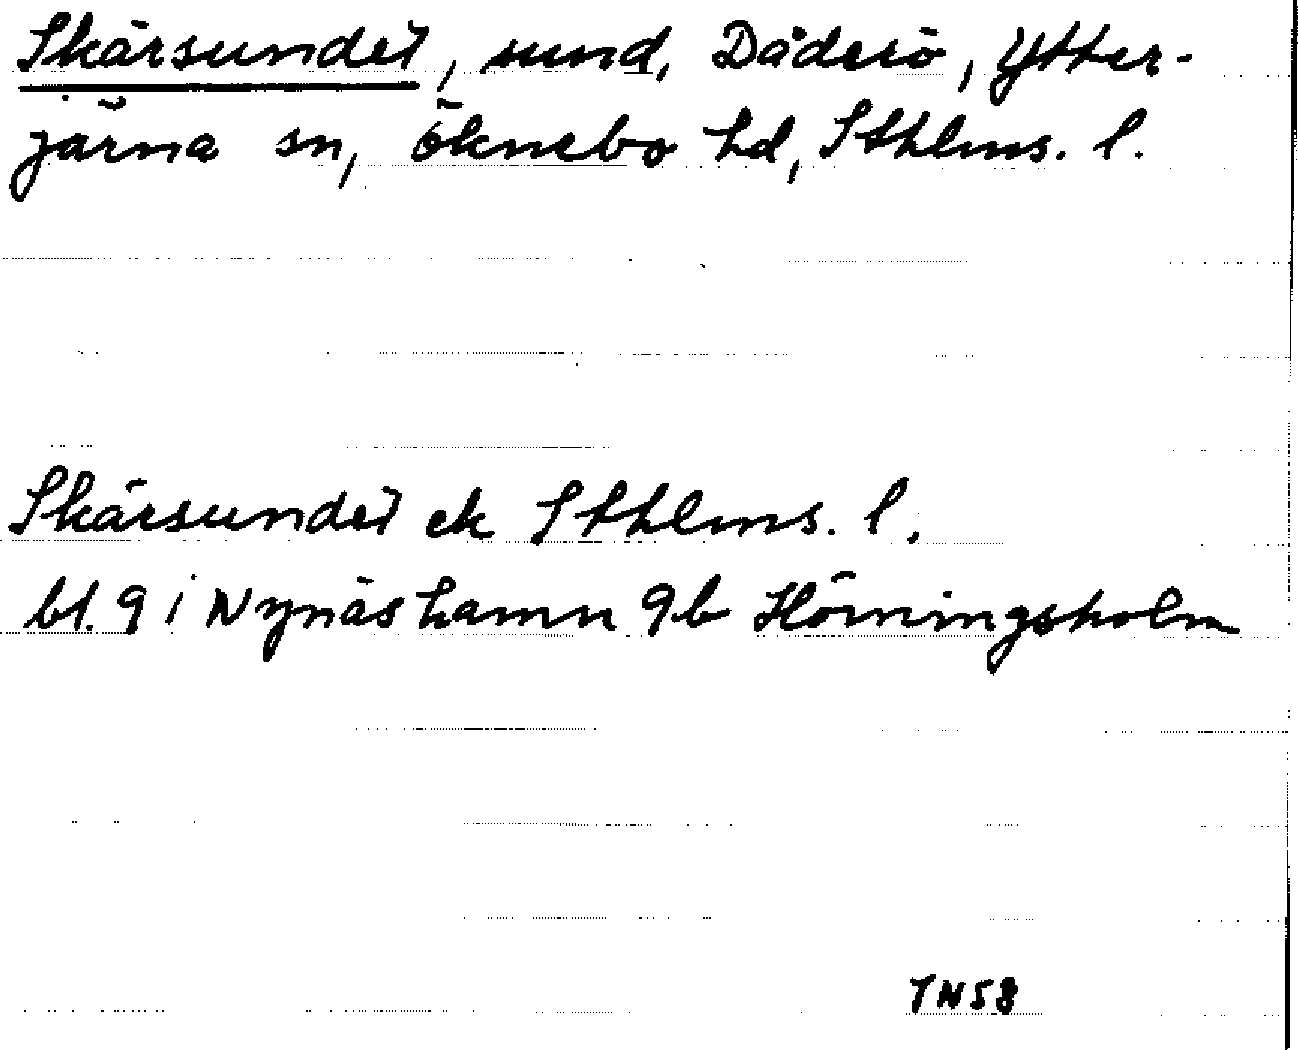 Skärsundet, sund, Dåderö, Ytter-
järna sn, Öknebo hd, Sthlms. l.
Skärsundet ek Sthlms. l.
bl. 9 i Nynäshamn 9b Hörningsholm
TN58